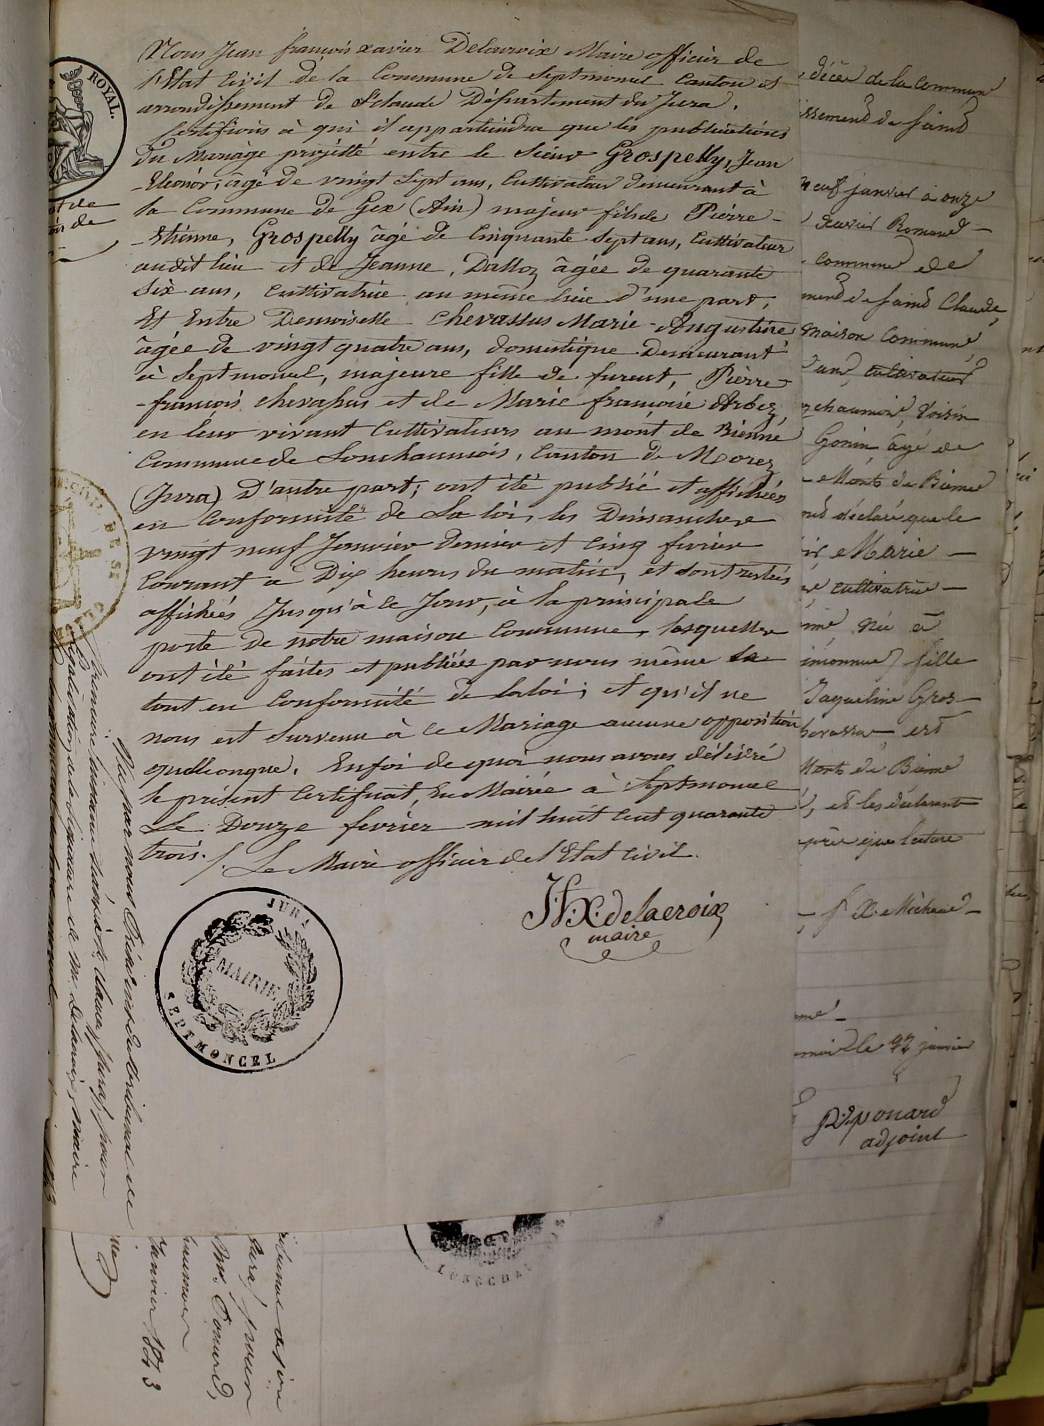 Nous Jean françois xavier Delacroix Maire officier de
l'Etat Civil de la Commune de Septmoncel Canton et
arrondissement de St Claude Département du Jura.
Certifions à qui il appartiendra que les publications
du Mariage projetté entre le Sieur Grospelly, Jean
-Eléonor, âgé de vingt Sept ans, Cultivateur demeurant à
la Commune de Gex (Ain) majeur fils de Pierre-
-Etienne, Grospelly âgé de Cinquante Sept ans, Cultivateur
audit lieu et de Jeanne, Dalloz âgée de quarante
Six ans, Cultivatrice au même lieu d'une part,
Et Entre Demoiselle Chevassus Marie-Augustine
âgée de vingt quatre ans, domestique Demeurant
à Septmoncel, majeure fille de furent, Pierre
-françois Chevassus et de Marie françoise Arbez,
en leur vivant Cultivateurs au mont de Bienne
Commune de Lonchaumois, Canton de Morez
(Jura) D'autre part; ont été publié et affichées
en Conformité de La loi, les Dimanches
vingt neuf Janvier dernier et Cinq fevrier
Courant, a Dix heures du matin, et sont restées
affichées Jusqu'à ce Jour, à la principale
porte de notre maison Commune, lesquelles
ont été faites et publiées par nous même le
tout en Conformité de la loi; et qu'il ne
nous est Survenu à ce Mariage aucune opposition
quelconque. En foi de quoi nous avons délivré
le présent Certificat, En Mairie à Septmoncel
Le Douze fevrier mil huit Cent quarante
trois./. Le Maire officier de l'Etat Civil.
J.f.X. delacroix
maire
JURA
MAIRIE
SEPTMONCEL
ROYAL.
Vu par nous Président du tribunal de
première instance séant à St Claude, (Jura) pour
légalisation de la signature de M. Delacroix, maire
décès de la Commune
issement de Saint
neuf janvier à onze
Xavier Romand
Commune de
ment de Saint Claude,
maison Commune,
cultivateur
chaumois, Voisin
Gonin âgé de
Monts de Bienne
ont déclaré que le
Marie
cultivatrice
née à
fille
Jaqueline Gros-
Chevassus, est
Monts de Bienne
et les déclarants
après que lecture
le 27 janvier
Ponard
adjoint
tribunal de 1ère
Jura) pour
Mr. Ponard,
Janvier 1843